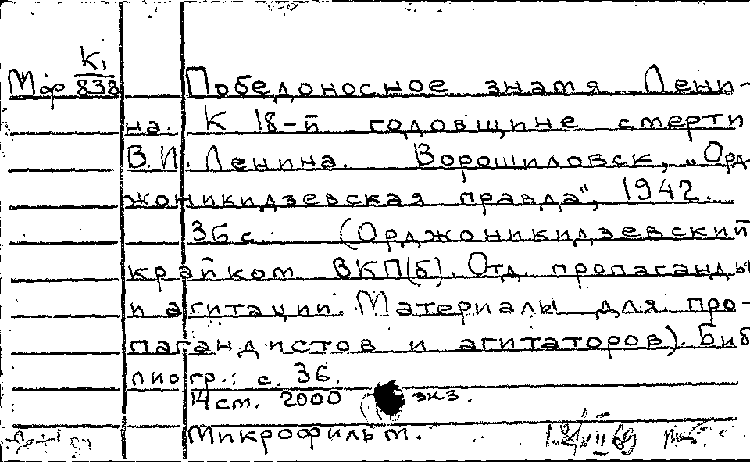 К1
Мф 838 Победоносное знамя Лени-
на. К 18-й годовщине смерти
В.И. Ленина. Ворошиловск, „Орд-
жоникидзевская правда", 1942.
36 с. (Орджоникидзевский
крайком ВКП(б). Отд. пропаганды
и агитации. Материалы для про-
пагандистов и агитаторов). Биб
лиогр.: с. 36.
14 см. 2000 экз.
Микрофильм.